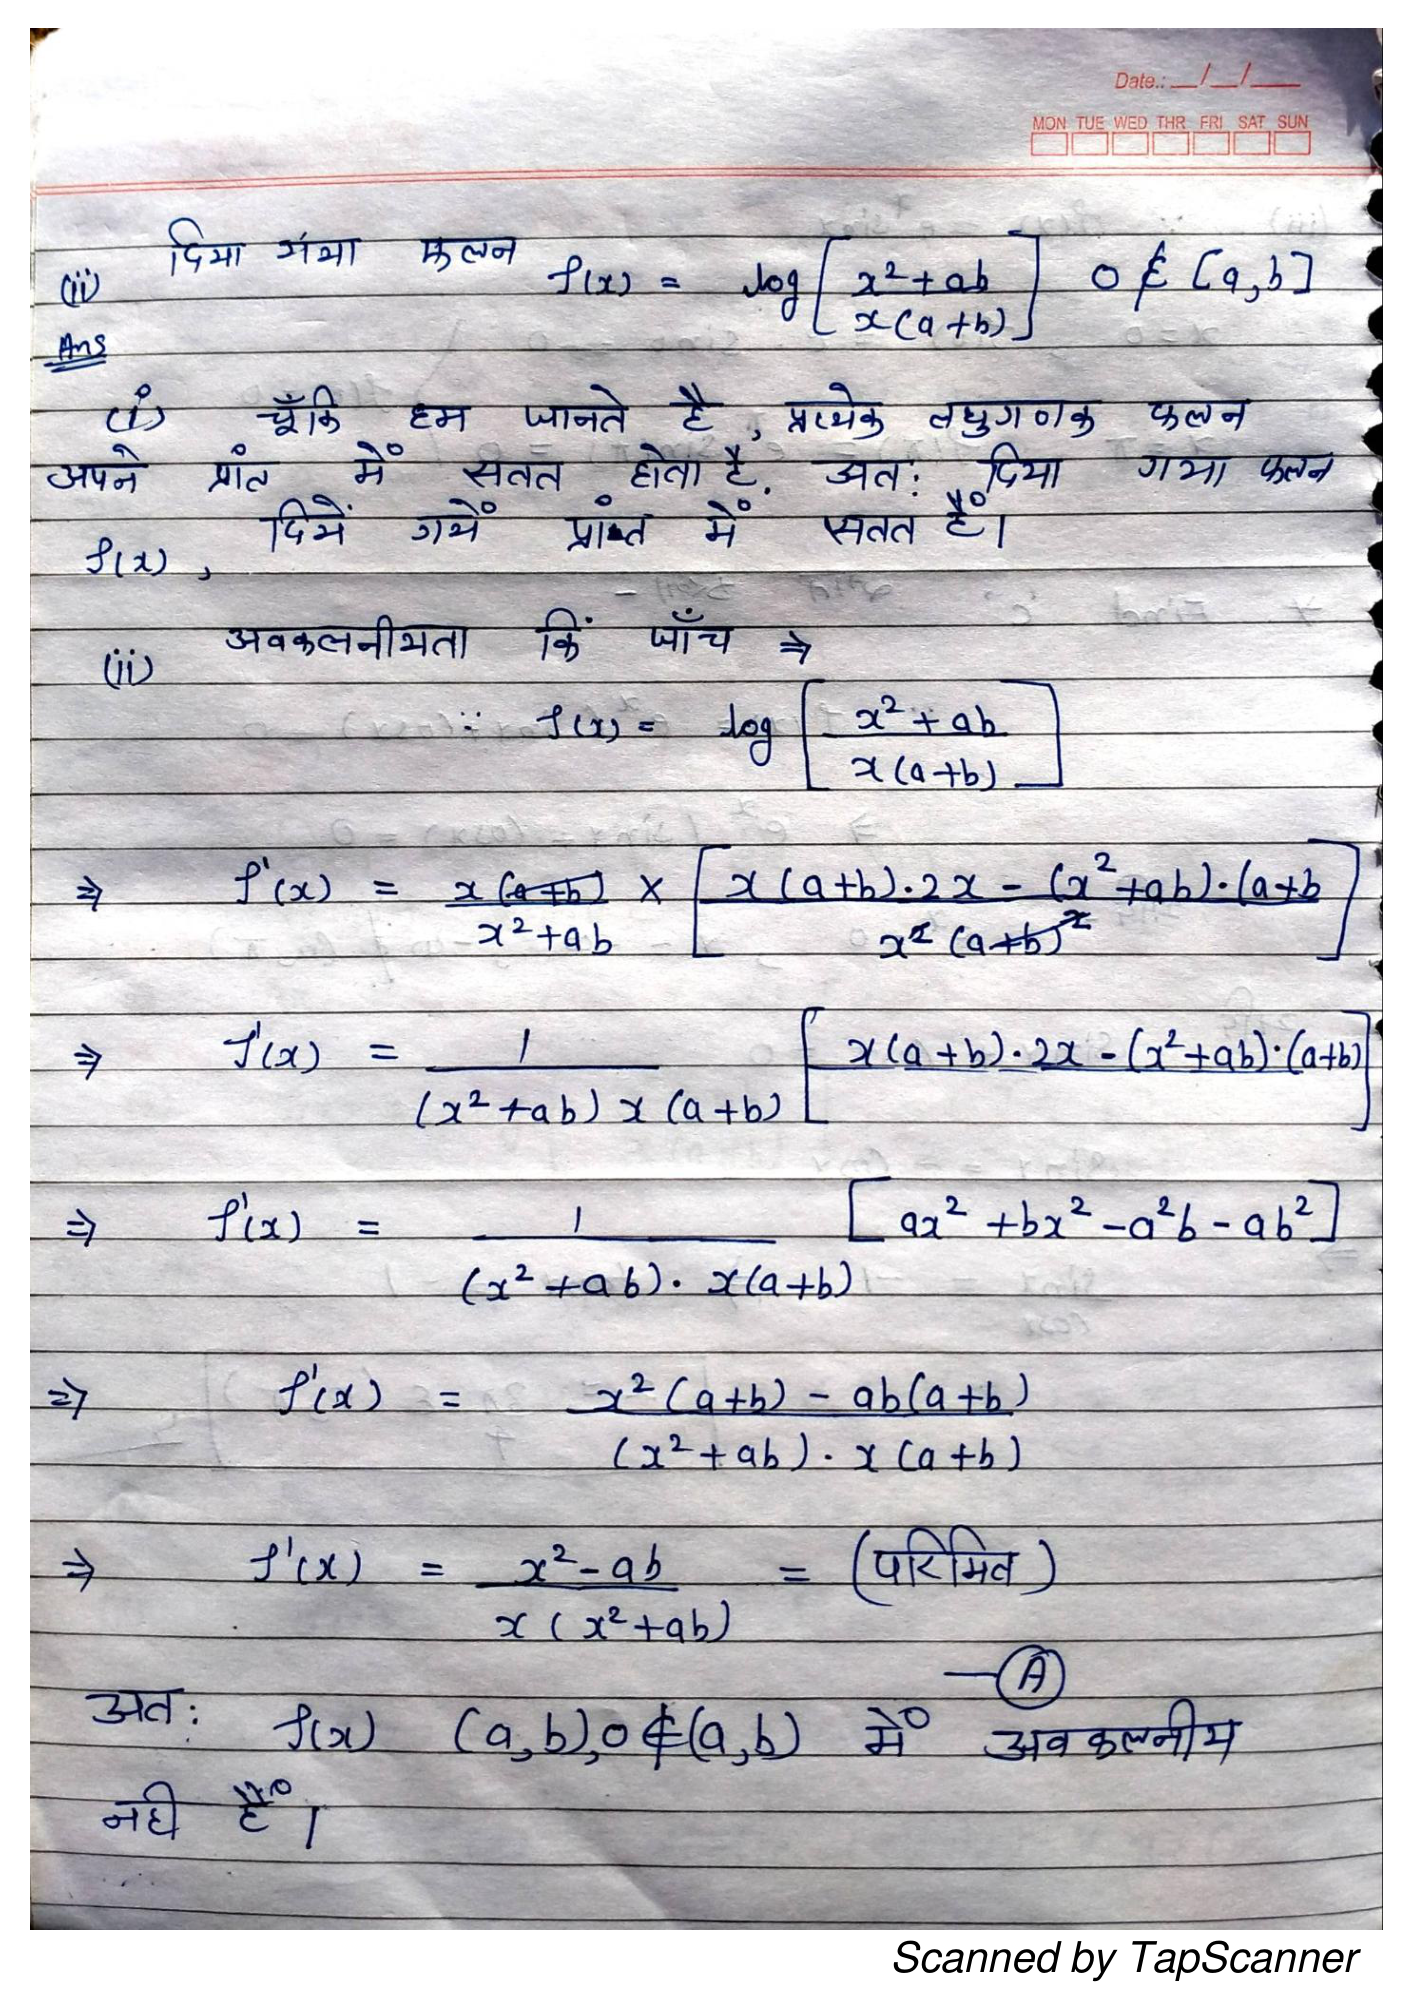 Date.: __/__/____
MON TUE WED THR FRI SAT SUN
(ii) दिया गया फलन f(x) = log[(x²+ab)/(x(a+b))] 0 ∉ [a,b]
Ans
(i) चूँकि हम जानते है, प्रत्येक लघुगणक फलन
अपने प्रांत में सतत होता है. अत: दिया गया फलन
f(x), दियें गयें प्रांन्त में सतत हैं।
(ii) अवकलनीयता किं जाँच ⇒
∵ f(x) = log[(x²+ab)/(x(a+b))]
⇒ f'(x) = x(a+b)/(x²+ab) × [(x(a+b)·2x - (x²+ab)·(a+b)/(x²(a+b)²)]
⇒ f'(x) = 1/((x²+ab)x(a+b)) [x(a+b)·2x - (x²+ab)·(a+b)]
⇒ f'(x) = 1/((x²+ab)·x(a+b)) [ax²+bx²-a²b-ab²]
⇒ f'(x) = (x²(a+b) - ab(a+b))/((x²+ab)·x(a+b))
⇒ f'(x) = (x²-ab)/(x(x²+ab)) = (परिमित)
—Ⓐ
अत: f(x) (a,b),0∉(a,b) में अवकलनीय
नही हैं।
Scanned by TapScanner